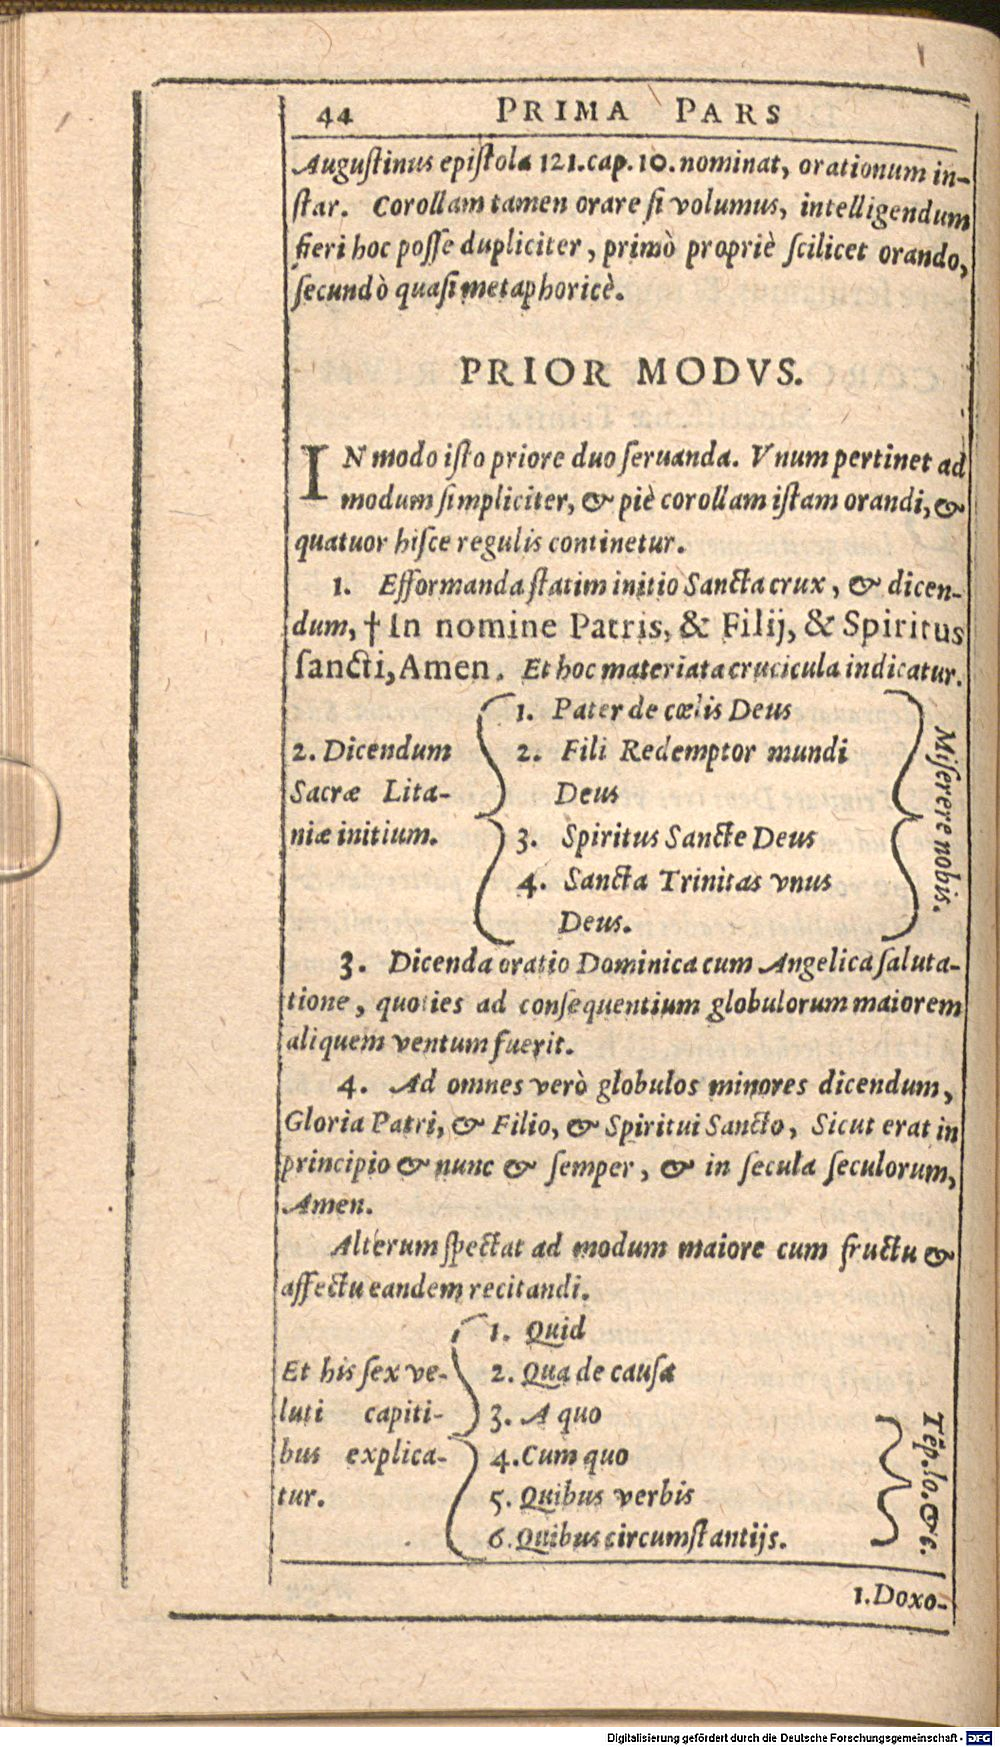 44 PRIMA PARS
Augustinus epistola 121. cap. 10. nominat, orationum in-
star. Corollam tamen orare si volumus, intelligendum
fieri hoc posse dupliciter, primò propriè scilicet orando,
secundò quasi metaphoricè.
PRIOR MODVS.
IN modo isto priore duo seruanda. Vnum pertinet ad
modum simpliciter, & piè corollam istam orandi, &
quatuor hisce regulis continetur.
1. Efformanda statim initio Sancta crux, & dicen-
dum, † In nomine Patris, & Filij, & Spiritus
sancti, Amen. Et hoc materiata crucicula indicatur.
2. Dicendum
Sacræ Lita-
niæ initium.
1. Pater de cœlis Deus
2. Fili Redemptor mundi
Deus
3. Spiritus Sancte Deus
4. Sancta Trinitas vnus
Deus.
Miserere nobis.
3. Dicenda oratio Dominica cum Angelica saluta-
tione, quoties ad consequentium globulorum maiorem
aliquem ventum fuerit.
4. Ad omnes verò globulos minores dicendum,
Gloria Patri, & Filio, & Spiritui Sancto, Sicut erat in
principio & nunc & semper, & in secula seculorum,
Amen.
Alterum spectat ad modum maiore cum fructu &
affectu eandem recitandi.
Et his sex ve-
luti capiti-
bus explica-
tur.
1. Quid
2. Qua de causa
3. A quo
4. Cum quo
5. Quibus verbis
6. Quibus circumstantijs.
Tēp. lo. &c.
1. Doxo-
Digitalisierung gefördert durch die Deutsche Forschungsgemeinschaft - DFG